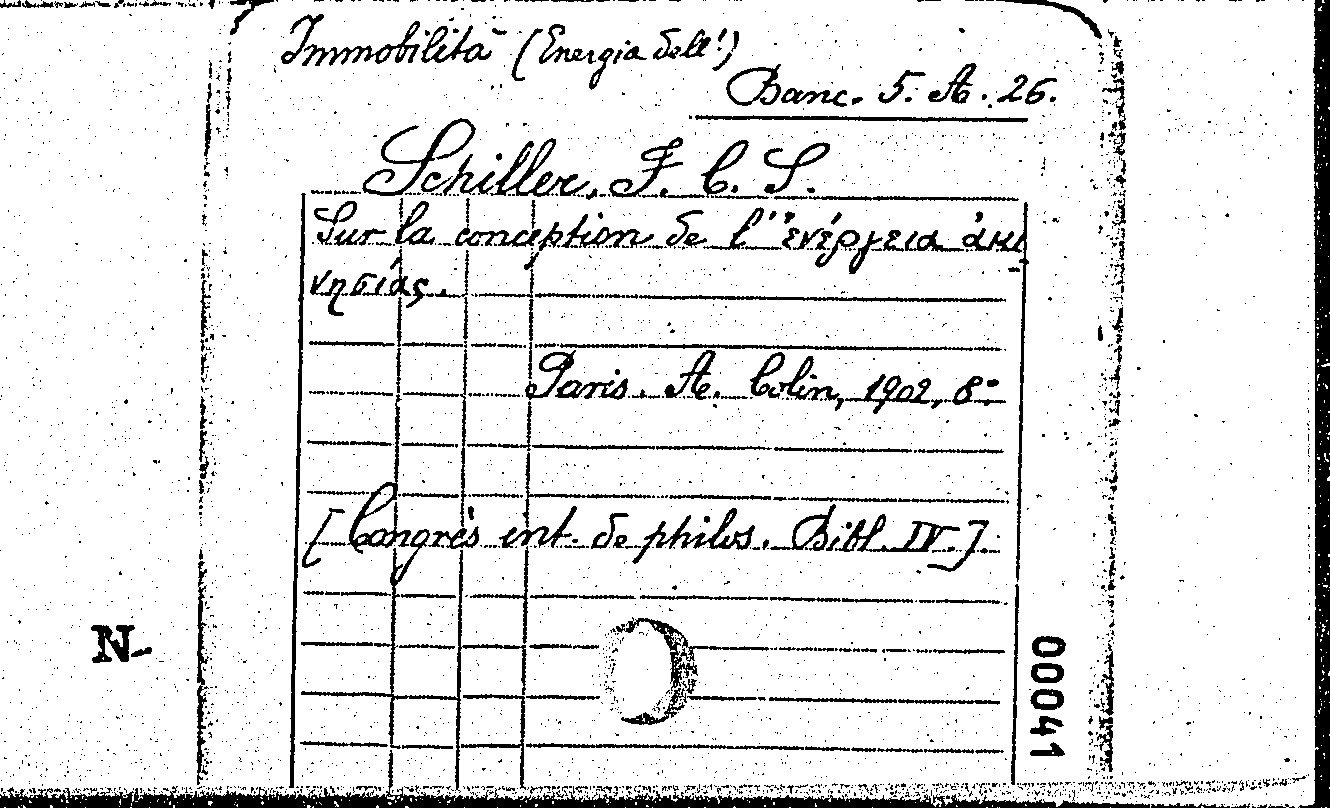 Immobilità (Energia dell')
Banc. 5. A. 26.
Schiller, F. C. S.
Sur la conception de l' ἐνέργεια ἀκι
νησιάς.
Paris. A. Colin, 1902, 8°.
[Congrès int. de philos. Bibl. IV.].
N-
00041